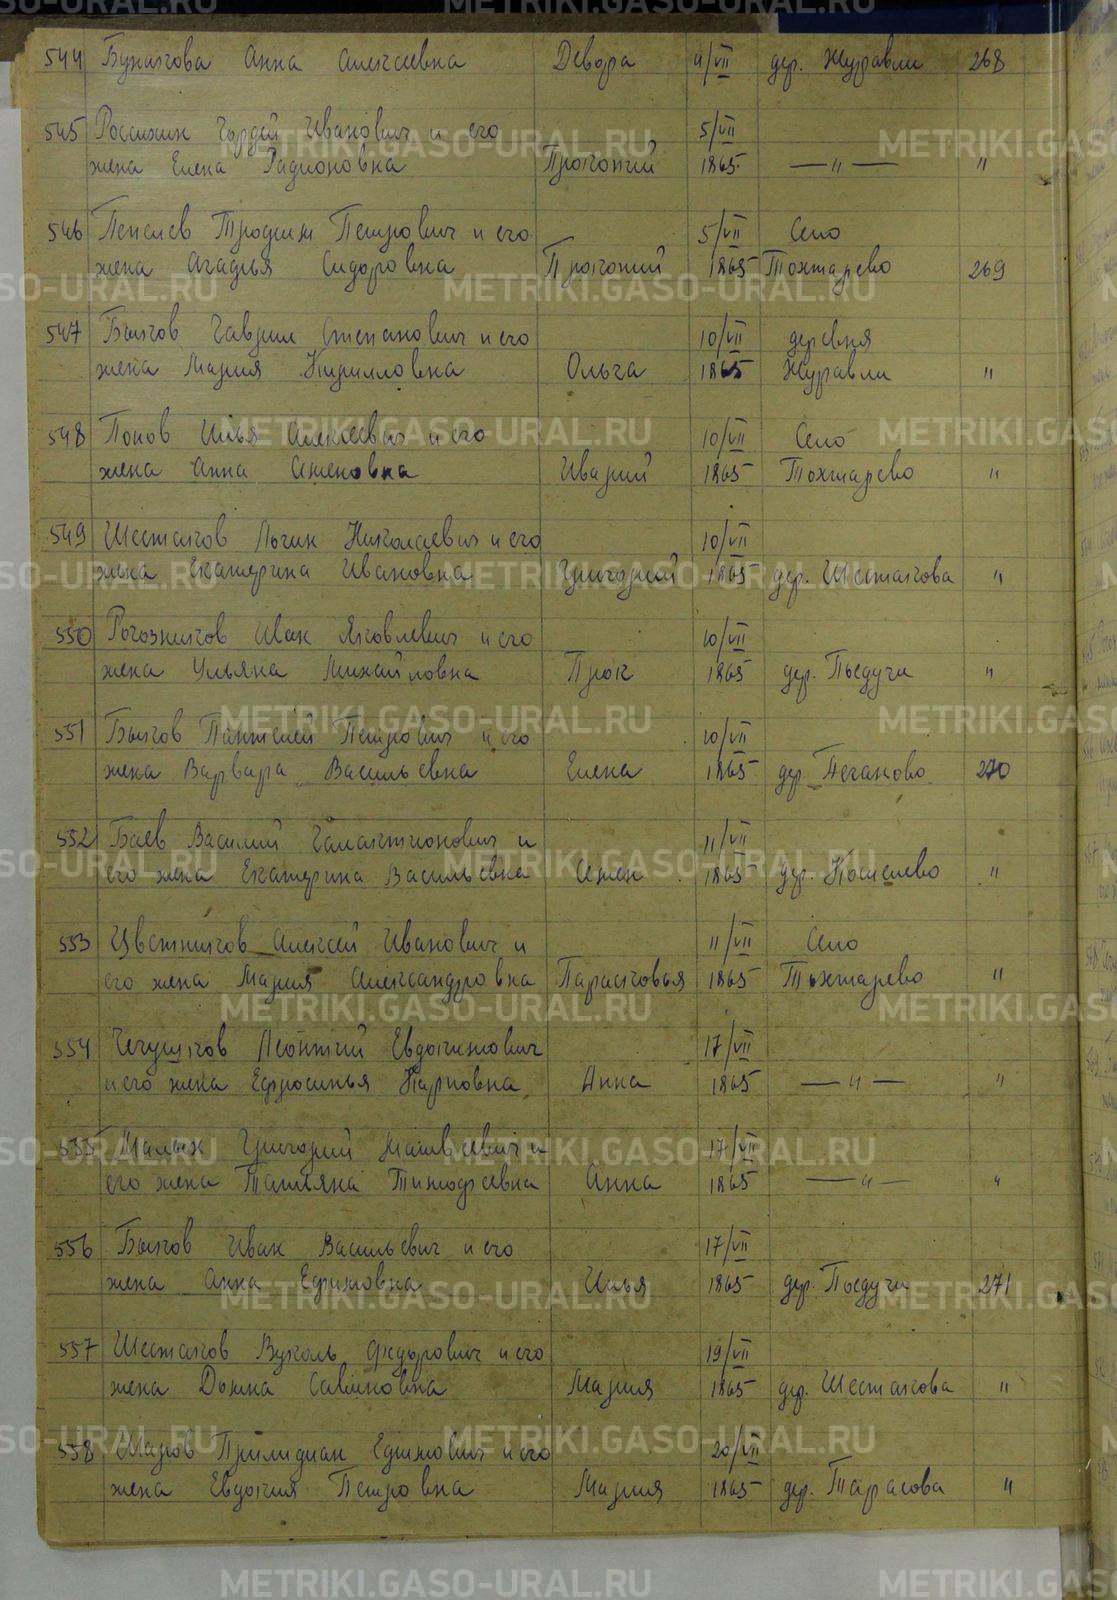 544 Бунькова Анна Алексеевна Девора 4/VII дер. Журавли 268
545 Россихин Гордей Иванович и его 5/VII
жена Елена Радионовна Прокопий 1865 —〃— 〃
546 Пепелев Трофим Петрович и его 5/VII Село
жена Агафья Сидоровна Прокопий 1865 Тохтарево 269
547 Быков Гаврил Степанович и его 10/VII деревня
жена Мария Кирилловна Ольга 1865 Журавли 〃
548 Попов Илья Алексеевич и его 10/VII Село
жена Анна Семеновна 1865 Тохтарево 〃
549 Шестаков Логин Николаевич и его 10/VII
жена Екатерина Ивановна Григорий 1865 дер. Шестакова 〃
550 Рогозников Иван Яковлевич и его 10/VII
жена Ульяна Михайловна Прок 1865 дер. Посдучи 〃
551 Быков Пантелей Петрович и его 10/VII
жена Варвара Васильевна Елена 1865 дер. Чеганово 270
552 Баев Василий Галактионович и 11/VII
его жена Екатерина Васильевна Семен 1865 дер. Кошелево 〃
553 Цветников Алексей Иванович и 11/VII Село
его жена Мария Александровна Парасковья 1865 Тохтарево 〃
554 Леонтий Евдокимович 17/VII
и его жена Ефросинья Карповна Анна 1865 —〃— 〃
555 Малых Григорий Матвеевич и 17/VII
его жена Татьяна Тимофеевна Анна 1865 —〃— 〃
556 Быков Иван Васильевич и его 17/VII
жена Анна Ефимовна Илья 1865 дер. Посдучи 271
557 Шестаков Вуколь Федорович и его 19/VII
жена Домна Савиновна Мария 1865 дер. Шестакова 〃
558 Шаров Прилидиан Ефимович и его 20/VII
жена Евдокия Петровна Мария 1865 дер. Тарасова 〃
METRIKI.GASO-URAL.RU